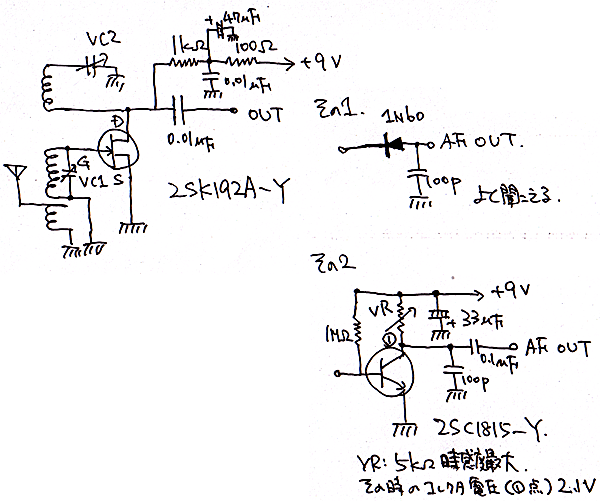 VC2
+ 47μF
1kΩ
100Ω
+9V
0.01μF
0.01μF
OUT
D
G
VC1
S
2SK192A-Y
その1.
1N60
AF OUT.
100p
よく聞こえる.
その2
+9V
VR
+ 33μF
1MΩ
①
0.1μF
AF OUT
100p
2SC1815-Y.
VR: 5kΩ時感度最大.
その時のコレクタ電圧(①点) 2.1V